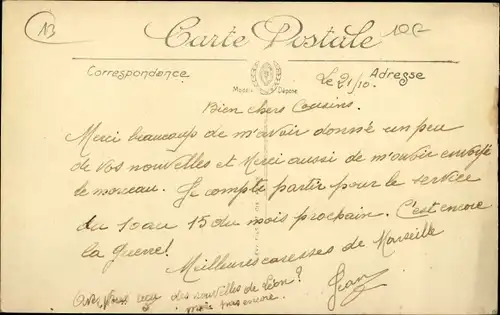 13
10 c
Carte Postale
Correspondance
Adresse
Modèle Déposé
Le 21/10.
Bien chers Cousins.
Merci beaucoup de m'avoir donné un peu
de vos nouvelles et Merci aussi de m'avoir envoyé
le morceau. Je compte partir pour le service
du 10 au 15 du mois prochain. C'est encore
la guerre!
Meilleures caresses de Marseille
Jean
Avez vous reçu des nouvelles de Léon?
encore.